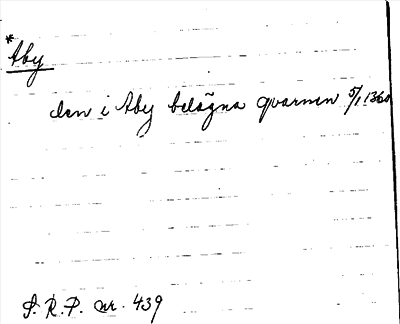 *Aby
den i Aby belägna qvarnen 5/1 1360
S. R. P. nr. 439